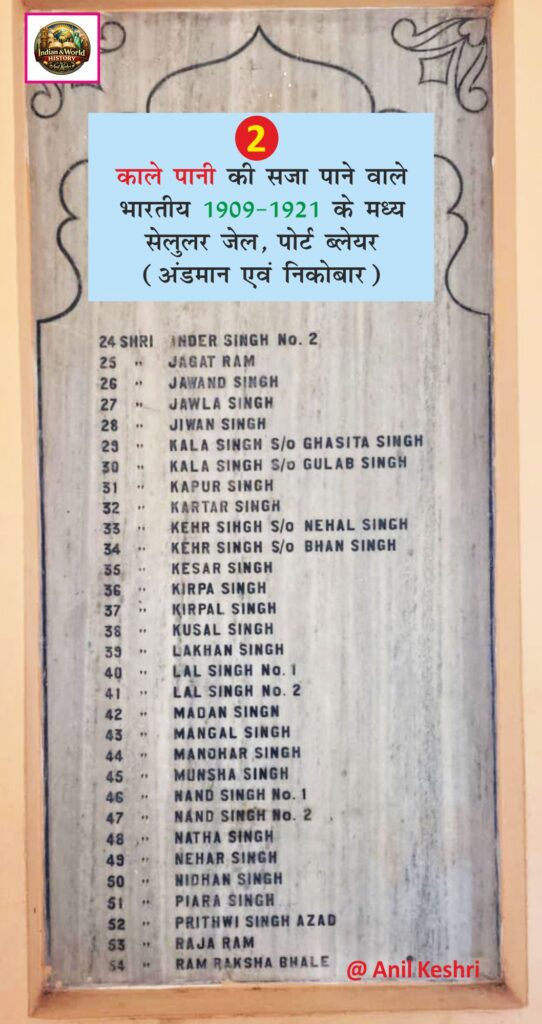 Indian & World
HISTORY
2
काले पानी की सजा पाने वाले
भारतीय 1909-1921 के मध्य
सेलुलर जेल, पोर्ट ब्लेयर
(अंडमान एवं निकोबार)
24 SHRI INDER SINGH No. 2
25 " JAGAT RAM
26 " JAWAND SINGH
27 " JAWLA SINGH
28 " JIWAN SINGH
29 " KALA SINGH S/o GHASITA SINGH
30 " KALA SINGH S/o GULAB SINGH
31 " KAPUR SINGH
32 " KARTAR SINGH
33 " KEHR SIHGH S/o NEHAL SINGH
34 " KEHR SINGH S/o BHAN SINGH
35 " KESAR SINGH
36 " KIRPA SINGH
37 " KIRPAL SINGH
38 " KUSAL SINGH
39 " LAKHAN SINGH
40 " LAL SINGH No. 1
41 " LAL SINGH No. 2
42 " MADAN SINGN
43 " MANGAL SINGH
44 " MANOHAR SINGH
45 " MUNSHA SINGH
46 " NAND SINGH No. 1
47 " NAND SINGH No. 2
48 " NATHA SINGH
49 " NEHAR SINGH
50 " NIDHAN SINGH
51 " PIARA SINGH
52 " PRITHWI SINGH AZAD
53 " RAJA RAM
54 " RAM RAKSHA BHALE
@ Anil Keshri